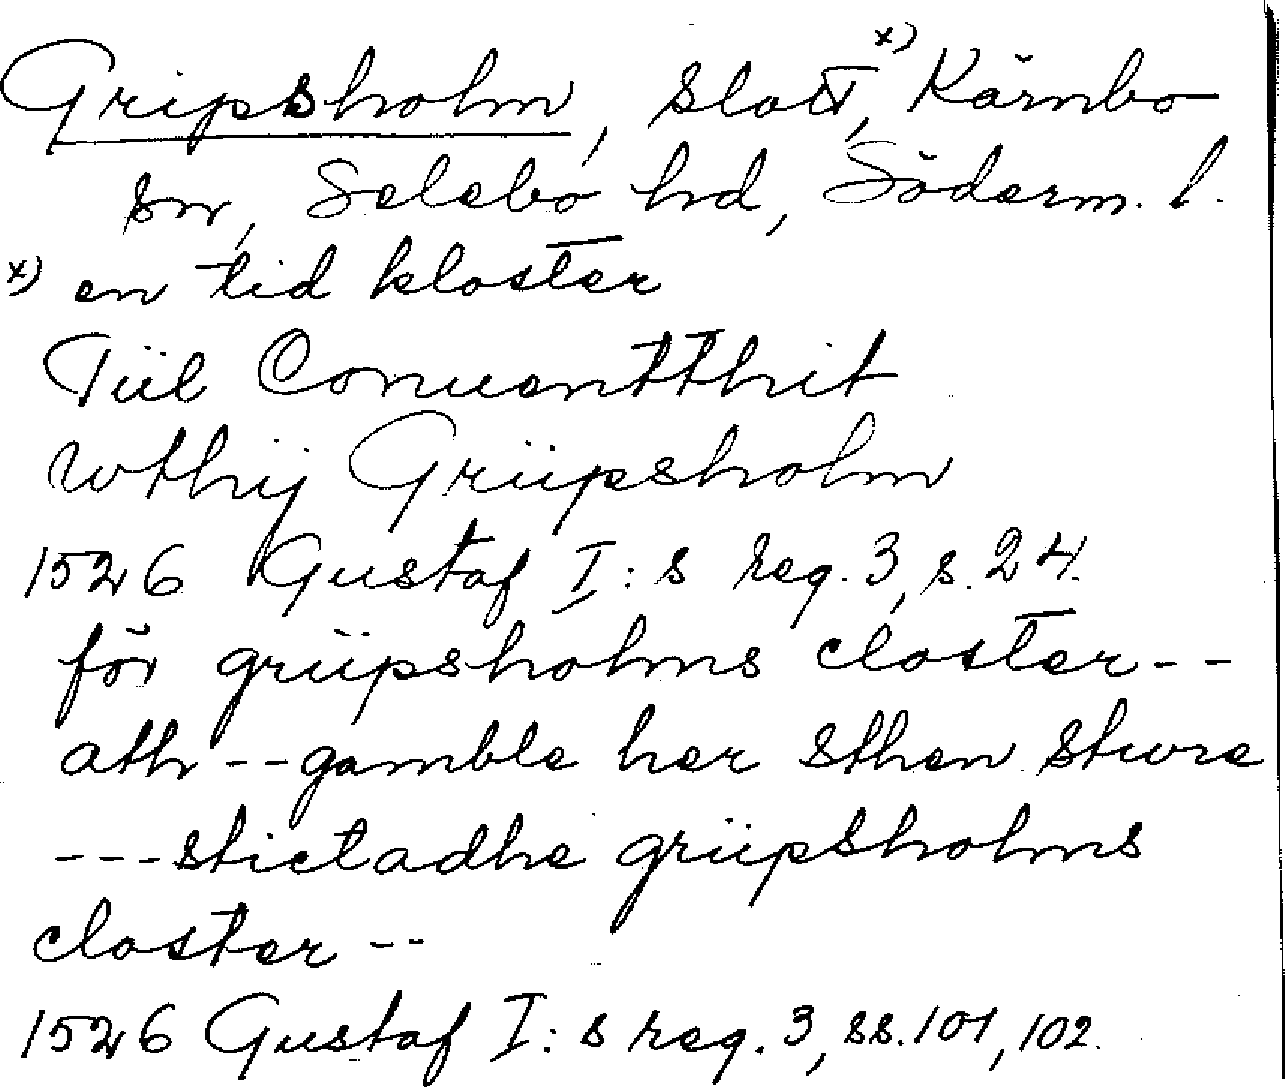 Gripsholm, slott, x) Kärnbo
sn, Selebo hd, Söderm. l.
x) en tid kloster
Tiil Conuentthit
wthij Griipsholm
1526 Gustaf I:s reg. 3, s. 24.
för griipsholms closter--
ath--gamble her Sthen Stwre
---stictadhe griipsholms
closter--
1526 Gustaf I:s reg. 3, ss. 101, 102.